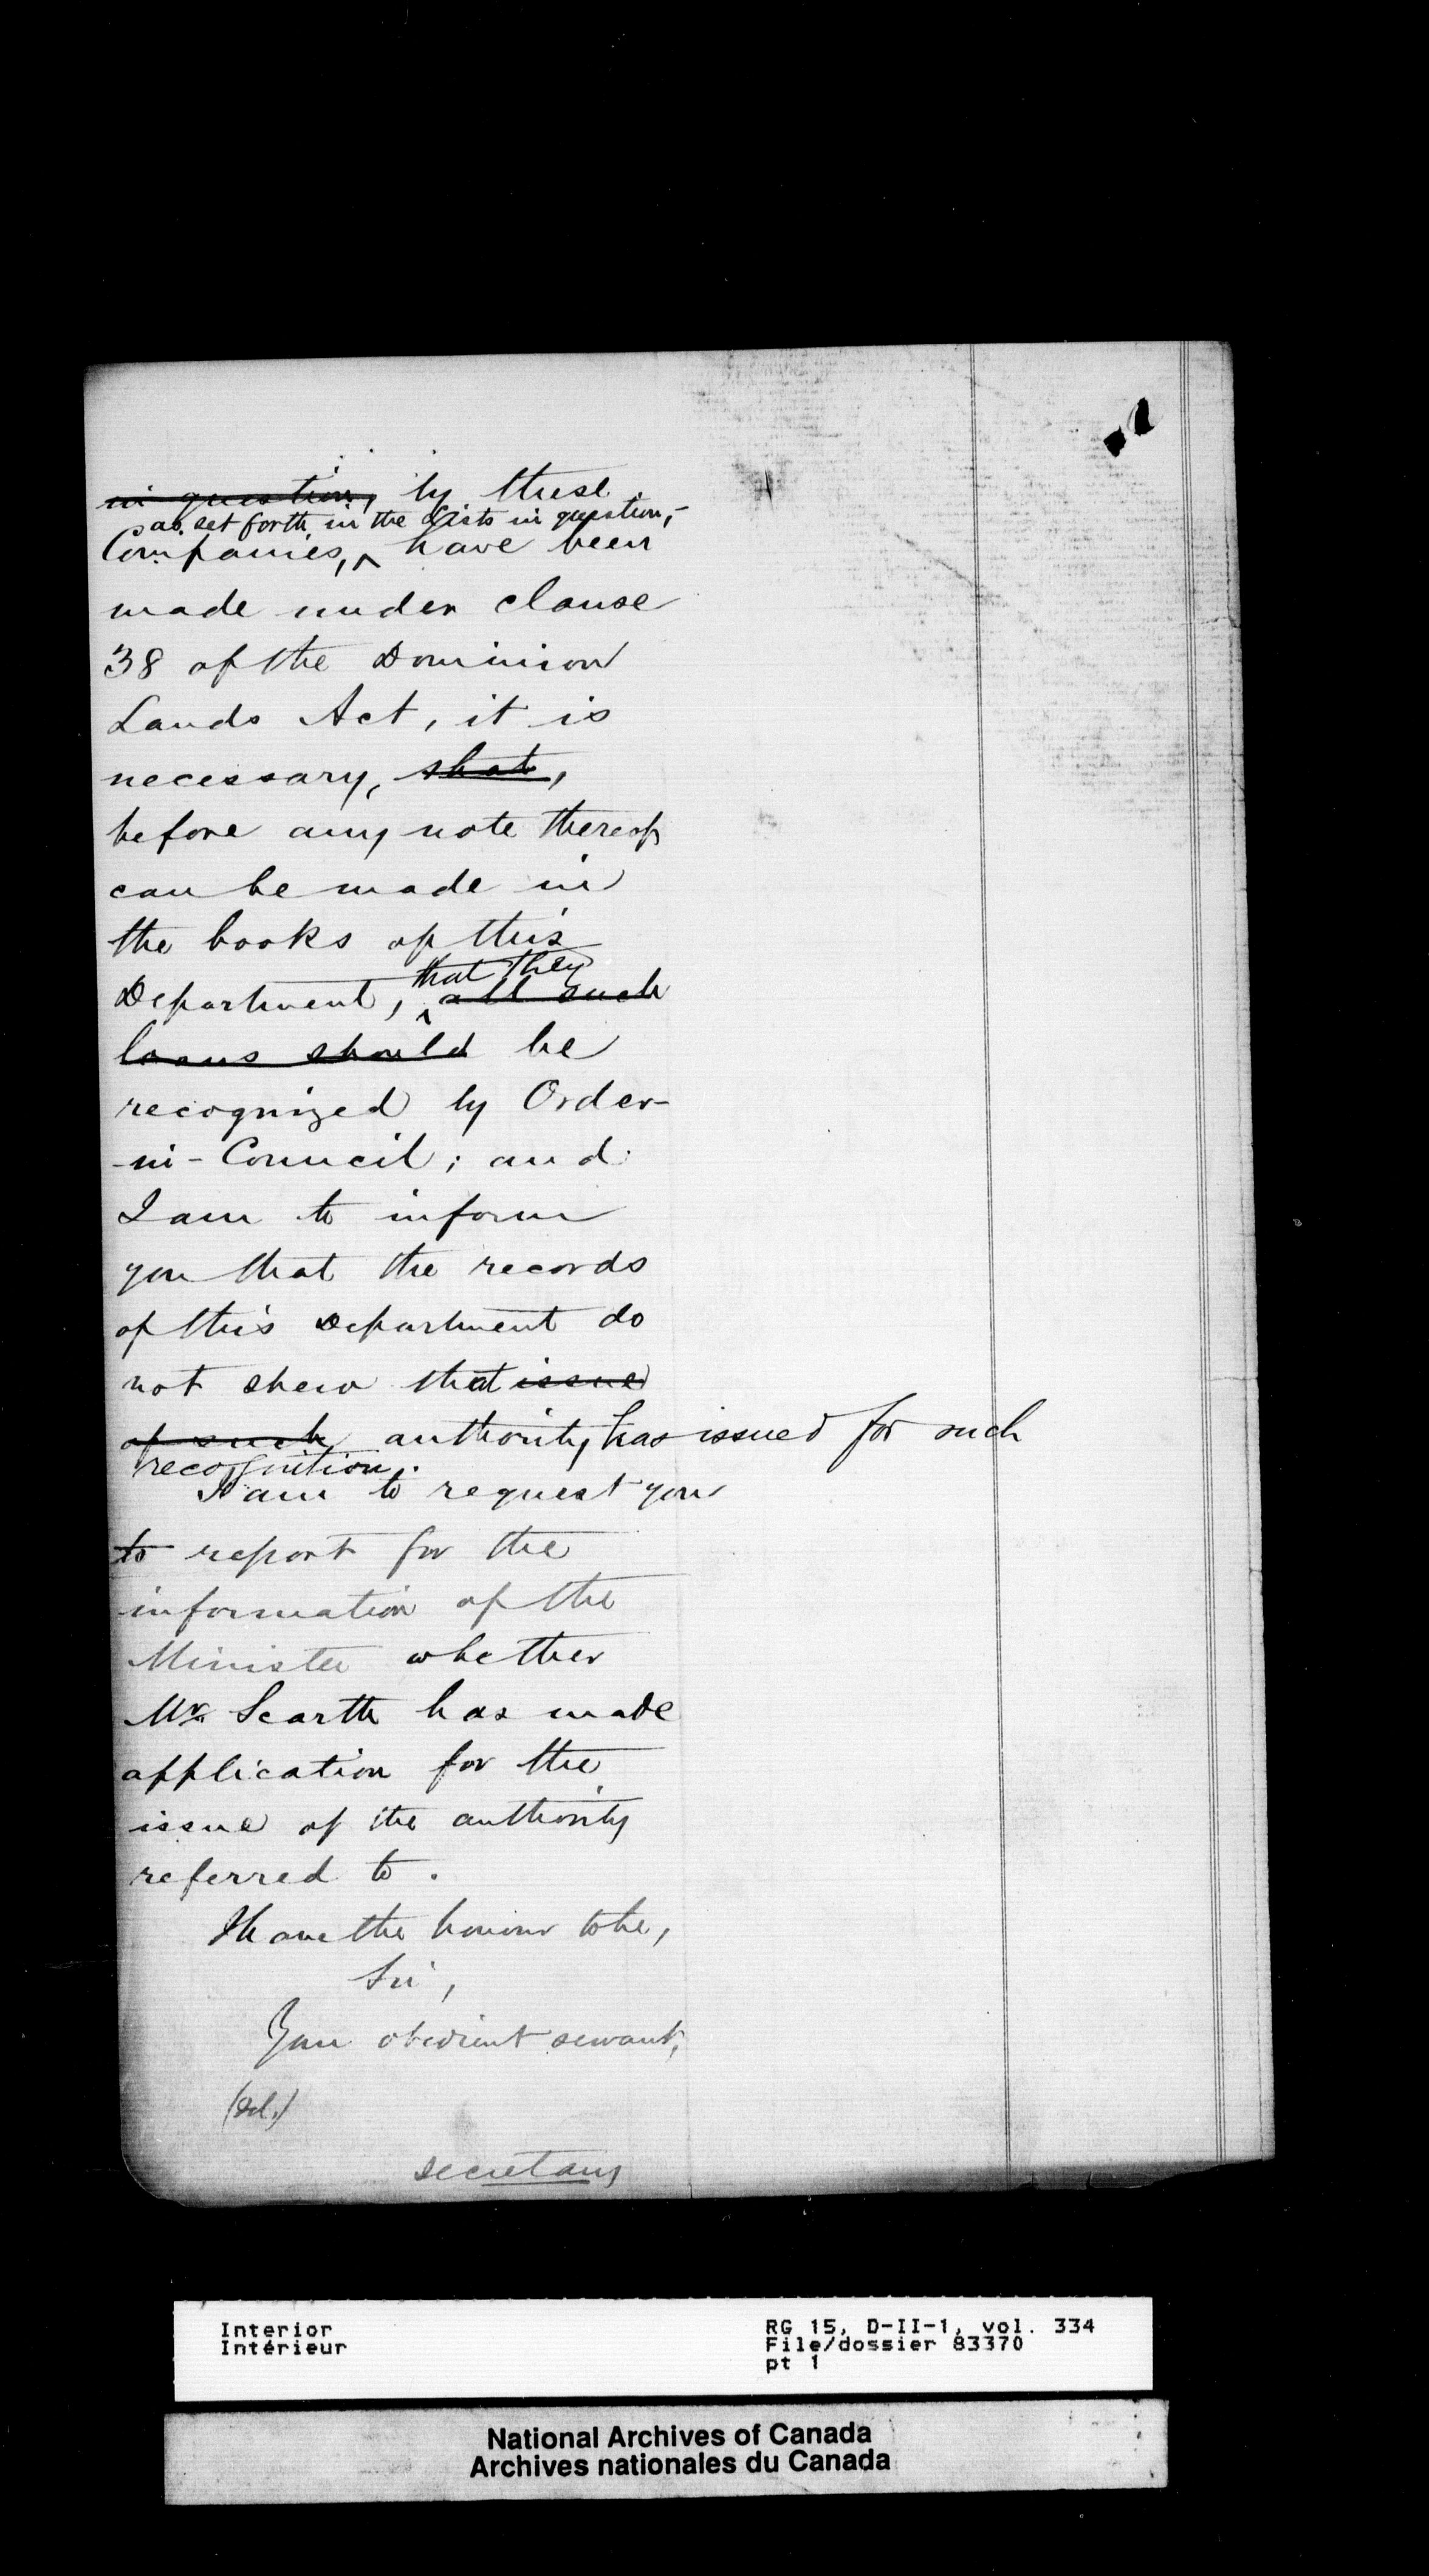 in question, by these
as set forth in the Lists in question,-
Companies, ^ have been
made under clause
38 of the Dominion
Lands Act, it is
necessary, that,
before any note thereof
can be made in
the books of this
that they
Department, ^ all such
loans should be
recognized by Order-
-in-Council; and
I am to inform
you that the records
of this Department do
not shew that issue
of such authority has issued for such
recognition.
I am to request you
to report for the
information of the
Minister whether
Mr. Scarth has made
application for the
issue of the authority
referred to.
I have the honour to be,
Sir,
Your obedient servant,
(Sd.)
Secretary
Interior
Intérieur
RG 15, D-II-1, vol. 334
File/dossier 83370
pt 1
National Archives of Canada
Archives nationales du Canada